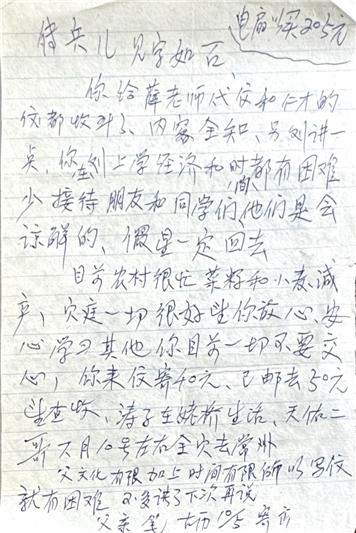 电扇以买205元
兵儿 见字如面
你给薛老师代信和仁才的
信都收到了、内容全知、另外讲一
点、你刻上学经济和时间都有困难
少接待朋友和同学们他们是会
谅解的、假皇一定回去
目前农村很忙 菜籽和小麦减
产，家庭一切很好望你放心、安
心学习其他你目前一切不要交
心，你来信寄40元、已邮去50元
望查收、涛子在姥桥生活、天佑二
哥 月10号左右全家去常州
父文化有限加上时间有限所以写信
就有困难 不多谈了下次再说
父亲 笔 古历